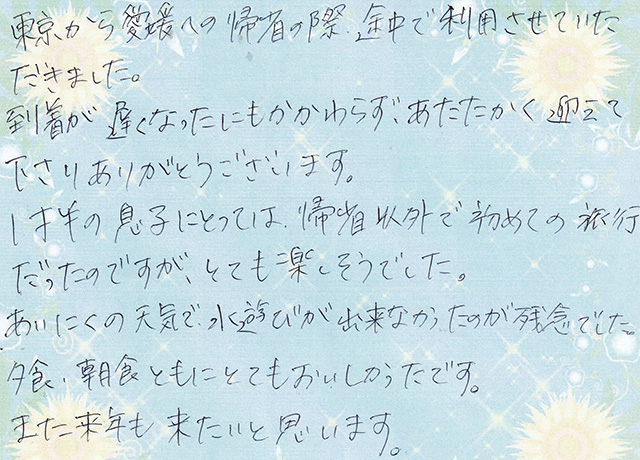 東京から愛媛への帰省の際、途中で利用させていた
だきました。
到着が遅くなったにもかかわらず、あたたかく迎えて
下さりありがとうございます。
1才半の息子にとっては、帰省以外で初めての旅行
だったのですが、とても楽しそうでした。
あいにくの天気で、水遊びが出来なかったのが残念でした。
夕食、朝食ともにとてもおいしかったです。
また来年も来たいと思います。